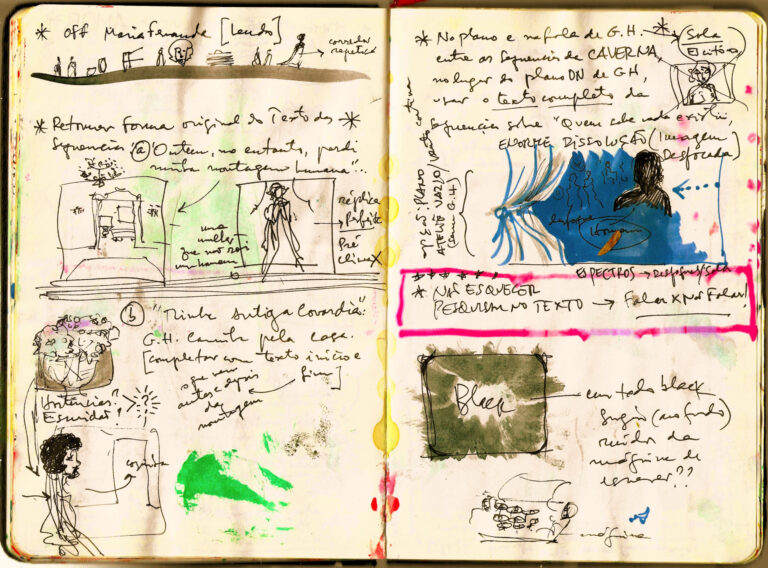 * Off Maria Fernanda [Lendo]
corredor
repetição
* Retomar forma original do Texto das *
Sequências (a) Ontem, no entanto, perdi
minha montagem humana"...
réplica
Perfeita
Pré
climaX
uma
mulher
que não sou
um homem
(b) "Minha antiga covardia":
G.H. caminha pela casa.
[completar com texto início e
fim]
o que vem
antes e depois
da
montagem
?
cozinha
* No plano e na fala de G.H.
entre as sequências da CAVERNA
no lugar do plano ON de GH,
usar o texto completo da
sequência sobre "Quem sabe nada existiu,
* Sala
Escritório
ENORME DISSOLUÇÃO (Imagem
Desfocada)
PLANO
ATELIÊ VAZIO
(sem G.H.)
ESPECTROS → Desfoques/Sala
* * * * * *
* NÃO ESQUECER
PESQUISAR NO TEXTO → Falar X Não Falar!
Black
em todo black
surgir (ao fundo)
ruído da
máquina de
escrever??
máquina